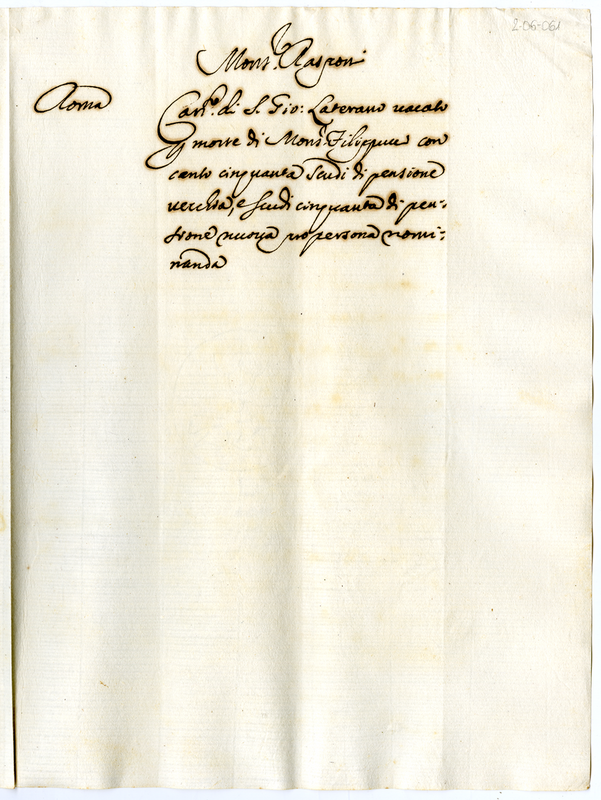 2-06-061
Mons.r Rasponi
Roma
Can.to di S. Gio: Laterano vacato
p morte di Mons.r Filippucci con
cento cinquanta scudi di pensione
vecchia, e scudi cinquanta di pen:
sione nuova pro persona nomi:
nanda